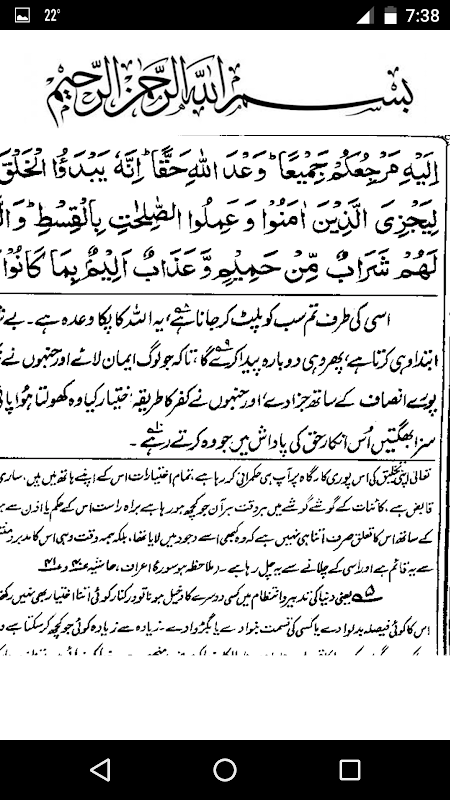 22°
7:38
بسم الله الرحمن الرحيم
اِلَيْهِ مَرْجِعُكُمْ جَمِيْعًا ؕ وَعْدَ اللّٰهِ حَقًّا ؕ اِنَّهٗ يَبْدَؤُا الْخَلْقَ
لِيَجْزِىَ الَّذِيْنَ اٰمَنُوْا وَعَمِلُوا الصّٰلِحٰتِ بِالْقِسْطِ ؕ
لَهُمْ شَرَابٌ مِّنْ حَمِيْمٍ وَّعَذَابٌ اَلِيْمٌۢ بِمَا كَانُوْا
اسی کی طرف تم سب کو پلٹ کر جانا ہے، یہ اللہ کا پکا وعدہ ہے۔
ابتدا وہی کرتا ہے، پھر وہی دوبارہ پیدا کرے گا، تاکہ جو لوگ ایمان لائے اور جنہوں نے
پورے انصاف کے ساتھ جزا دے، اور جنہوں نے کفر کا طریقہ اختیار کیا وہ کھولتا ہوا
سزا بھگتیں اُس انکارِ حق کی پاداش میں جو وہ کرتے رہے۔
تعالیٰ اپنی تخلیق کی اس پوری کارگاہ پر آپ ہی حکمرانی کر رہا ہے، تمام اختیارات اس کے اپنے ہاتھ میں ہیں، ساری
قابض ہے، کائنات کے گوشے گوشے میں ہر وقت ہر آن جو کچھ ہو رہا ہے براہ راست اس کے حکم یا اذن سے
کے ساتھ اس کا تعلق صرف اتنا ہی نہیں ہے کہ وہ کبھی اسے وجود میں لایا تھا، بلکہ ہمہ وقت وہی اس کا مدبر و
سے یہ قائم ہے اور اسی کے چلانے سے یہ چل رہا ہے۔ (ملاحظہ ہو سورۂ اعراف، حاشیہ
یعنی دنیا کی تدبیر و انتظام میں کسی دوسرے کا دخیل ہونا تو درکنار کوئی اتنا اختیار بھی نہیں
اس کا کوئی فیصلہ بدلوا دے یا کسی کی قسمت بنوا دے یا بگڑوا دے۔ زیادہ سے زیادہ کوئی جو کچھ کر سکتا ہے